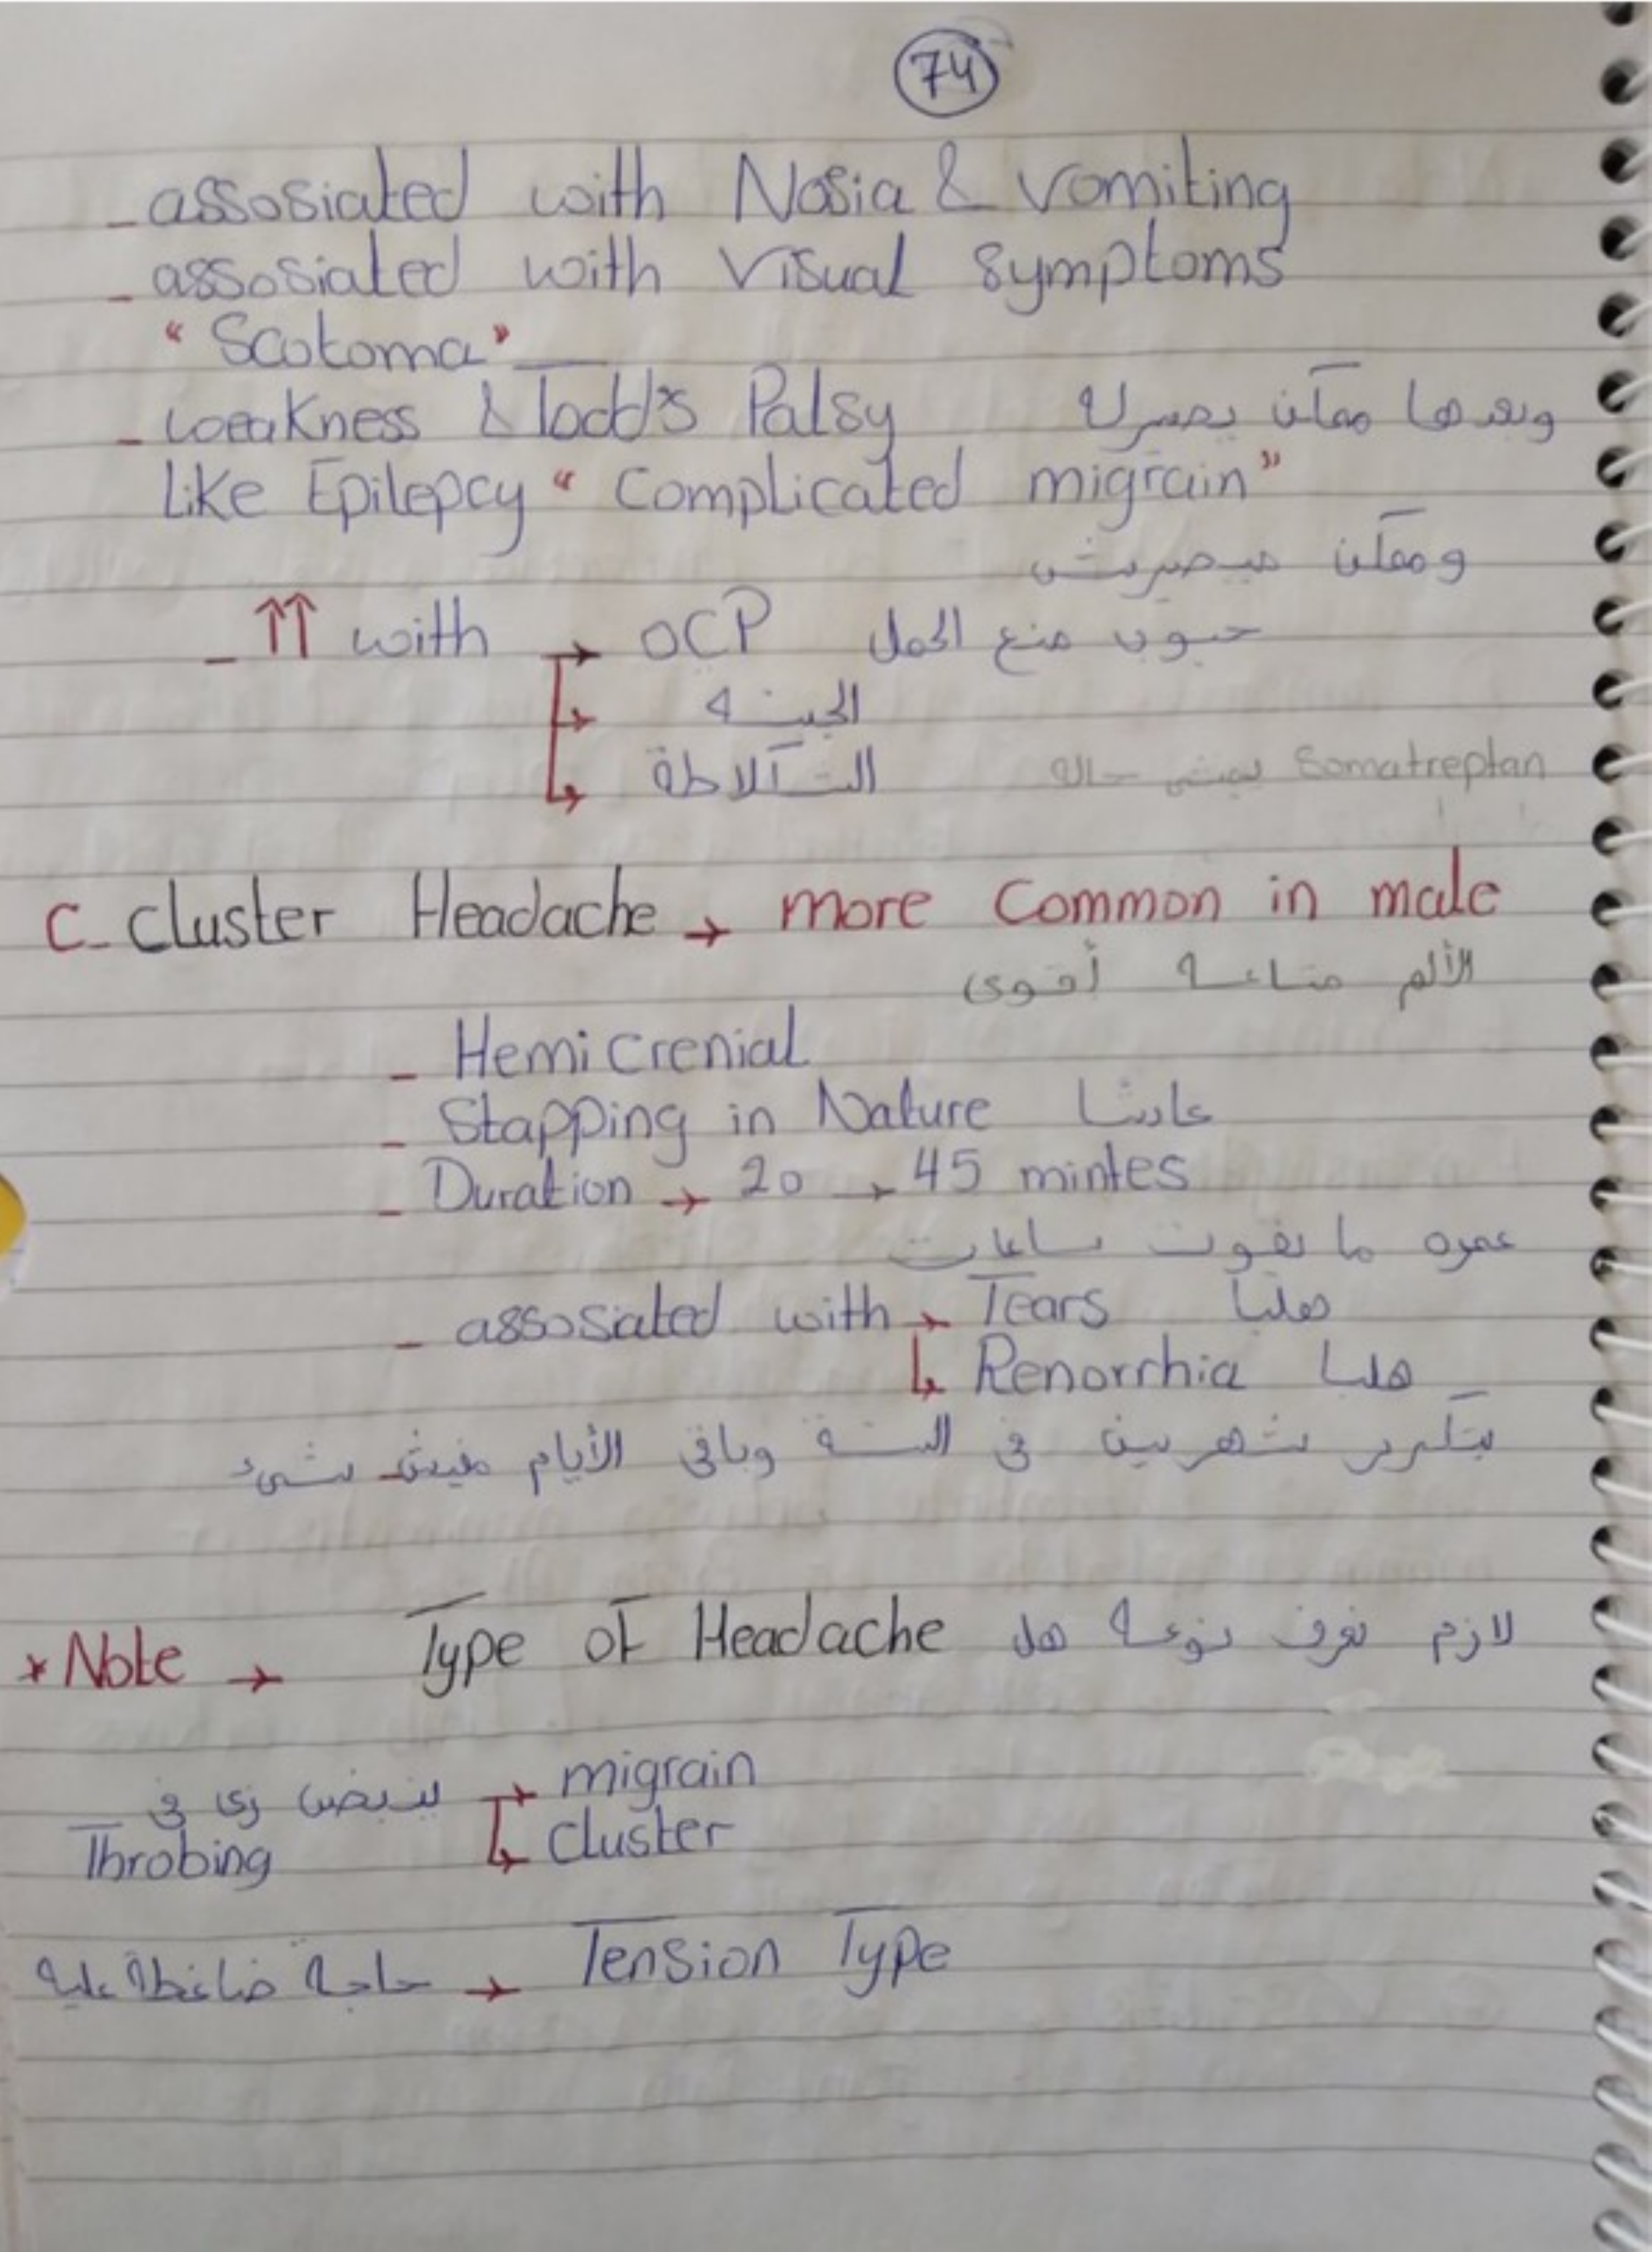 74
- assosiated with Nosia & vomiting
- assosiated with visual symptoms
"Scotoma"
- weakness & Todd's Palsy وبعدها ممكن يصيرله
Like Epilepcy "Complicated migrain"
وممكن ميصيرش
- ↑↑ with → OCP حبوب منع الحمل
↳ الجبنه
↳ الشكلاطة Somatreptan يمشي حاله
C- cluster Headache → more Common in male
الألم متاعه أقوى
- Hemicrenial
- Stapping in Nature عادتا
- Duration → 20 → 45 mintes
عمره ما يفوت ساعات
- assosiated with → Tears هلبا
↳ Renorrhia هلبا
يتكرر شهرين في السنة وباقي الأيام مفيش شيء
* Note → Type of Headache لازم نعرف نوعه هل
ينبض زي في → migrain
Throbing ↳ cluster
حاجة ضاغطة عليه → Tension Type